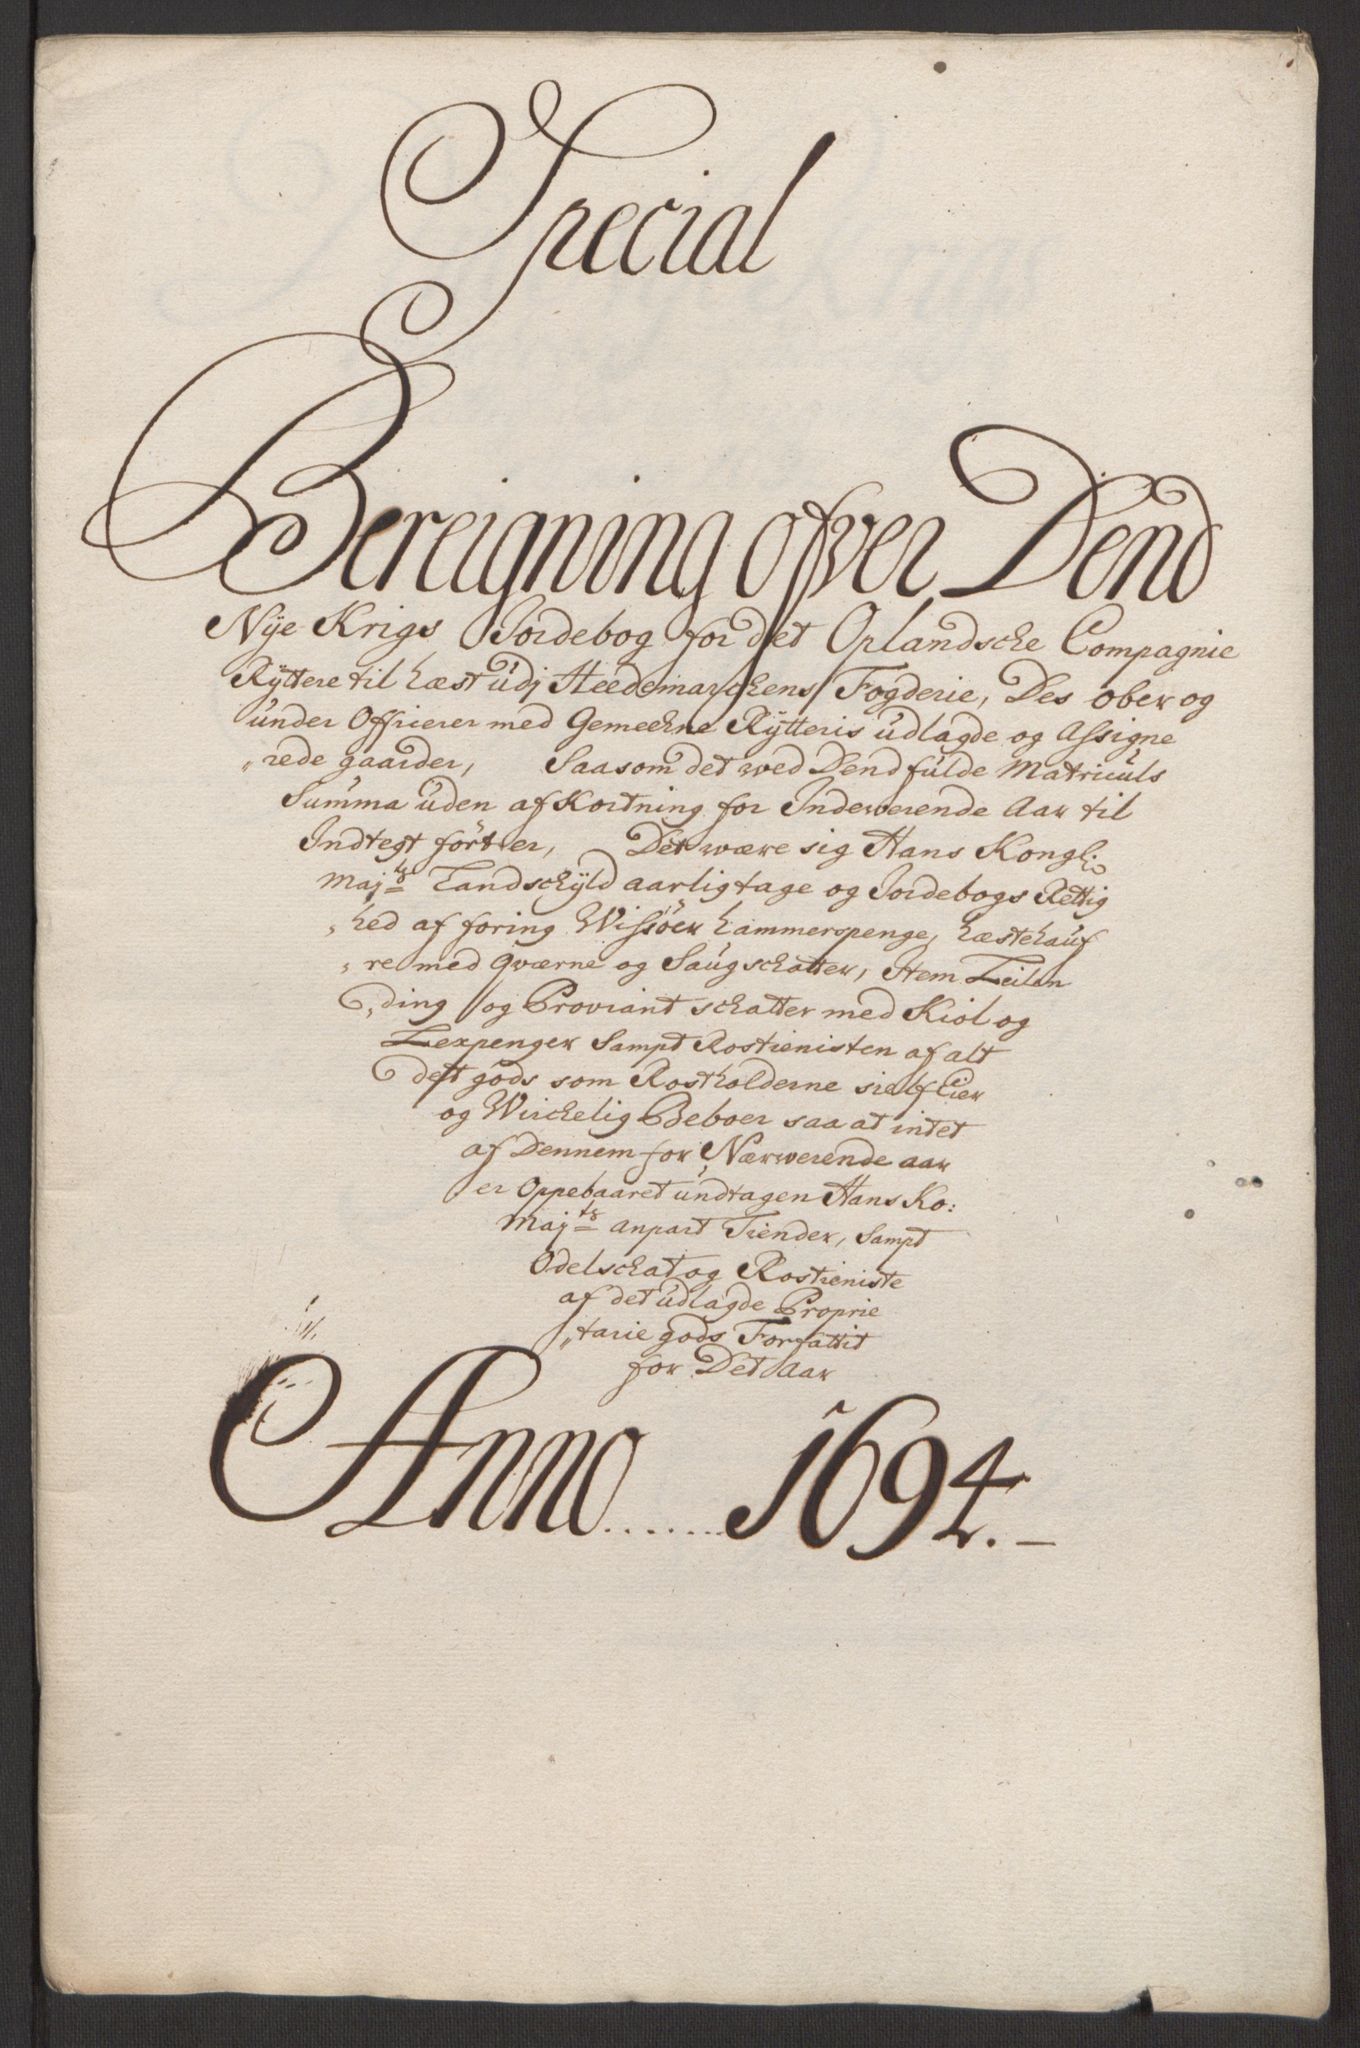 Special
Bereigning ofver Dend
Nÿe Krigs Jordebog for det Oplandsche Compagnie
Rÿttere til hæst udj Heedemarckens Fogderie, Des ober og
under Officerer med Gemeehne Rÿtteris udlagde og Assigne
„rede gaarder, Saasom det wed Dend fulde Matriculs
Summa uden af Kortning for Indewerende Aar til
Indtegt fört er, Det være sig Hans Kongl:
Majts Landschÿld aarlig tage og Jordebogs Rettig
„hed af foring Wissöer hammerspenge, hæstehauf
„re med Qværne og Saugschatter, Item Leilen
„ding og Proviant schatter med Kiol og
Lexpenger Sampt Rostienisten af alt
dest gods som Rostholderne sielf Eier
og Wirckelig Beboer saa at intet
af Dennem for Nærwerende aar
er Oppebaaret undtagen Hans Ko:
Majts anpart Tiender, Sampt
Odelschat og Rostieniste
af det udlagde Proprie
„tarie gods Forfattit
for Det Aar
Anno ....... 1694.